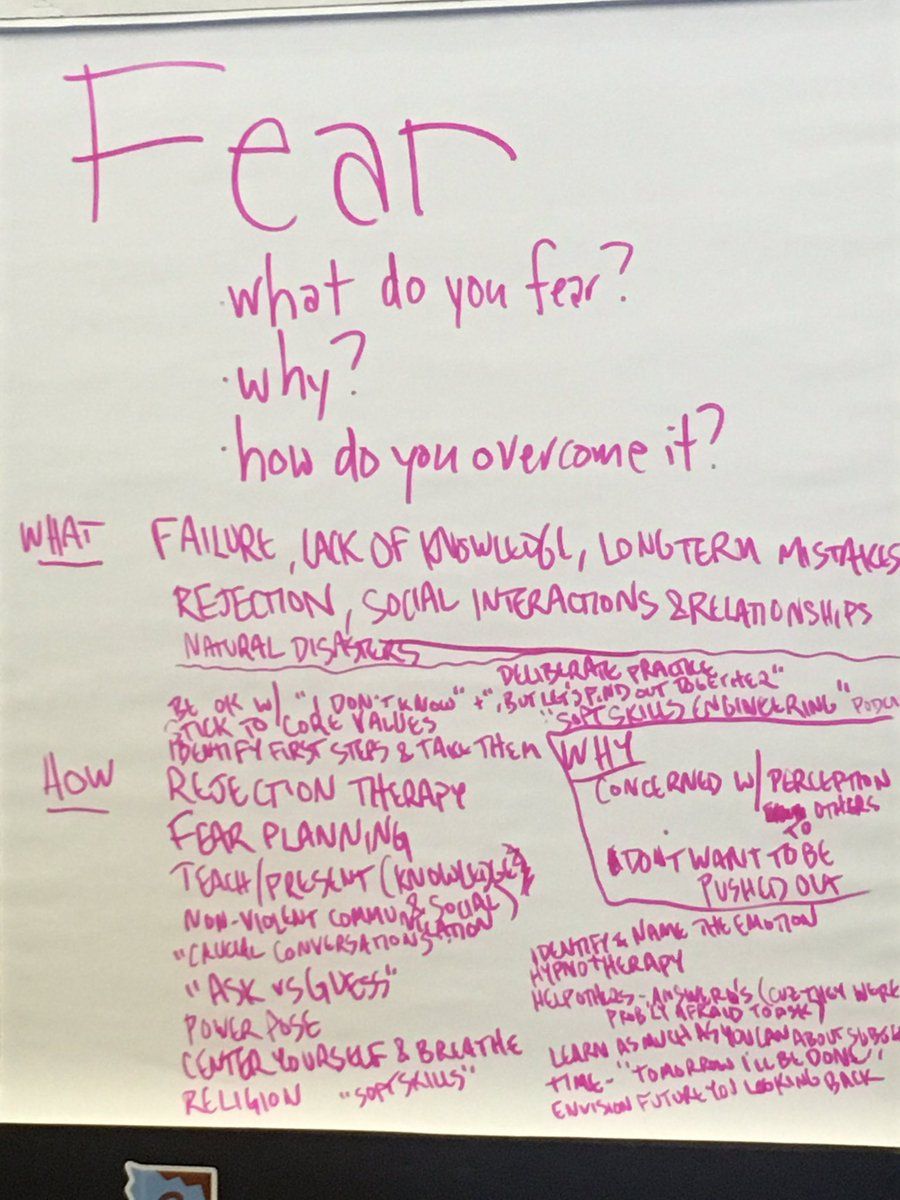 Fear
· what do you fear?
· why?
· how do you overcome it?
WHAT FAILURE, LACK OF KNOWLEDGE, LONGTERM MISTAKES
REJECTION, SOCIAL INTERACTIONS & RELATIONSHIPS
NATURAL DISASTERS
DELIBERATE PRACTICE
BE OK W/ "I DON'T KNOW" + ", BUT LET'S FIND OUT TOGETHER"
STICK TO CORE VALUES
"SOFT SKILLS ENGINEERING"
IDENTIFY FIRST STEPS & TAKE THEM
HOW
REJECTION THERAPY
FEAR PLANNING
TEACH/PRESENT (KNOWLEDGE
& SOCIAL)
NON-VIOLENT COMMUNICATION
"CRUCIAL CONVERSATIONS"
"ASK VS GUESS"
POWER POSE
CENTER YOURSELF & BREATHE
RELIGION "SOFT SKILLS"
WHY
CONCERNED W/ PERCEPTION
TO OTHERS
DON'T WANT TO BE
PUSHED OUT
IDENTIFY & NAME THE EMOTION
HYPNOTHERAPY
HELP OTHERS - ANSWER Q'S (CUZ THEY WERE
PROB'LY AFRAID TO ASK)
LEARN AS MUCH AS YOU CAN ABOUT
TIME - "TOMORROW I'LL BE DONE"
ENVISION FUTURE YOU LOOKING BACK